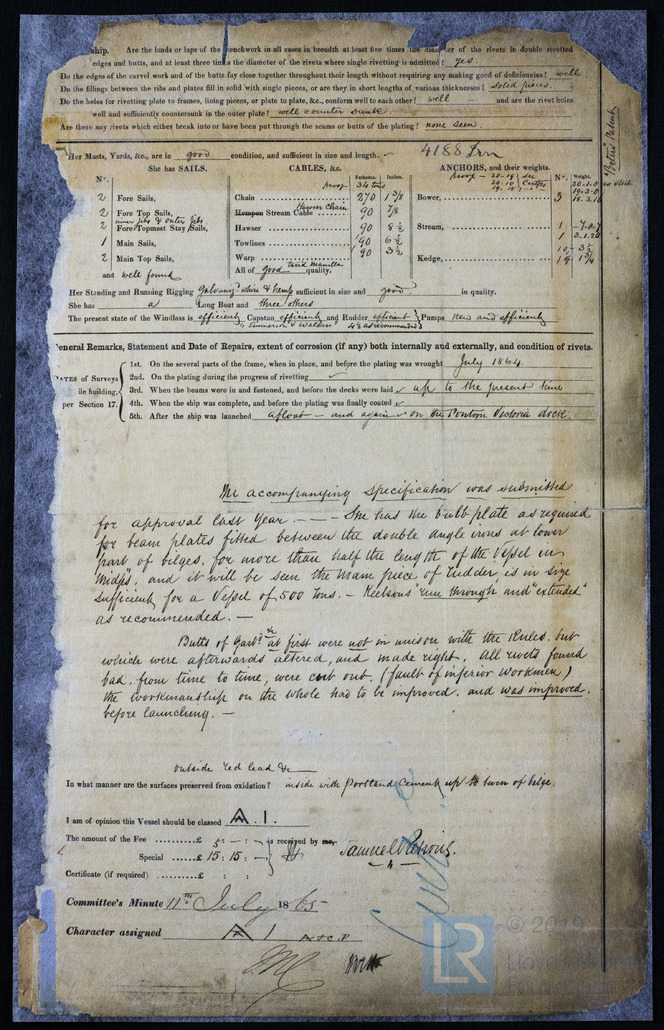 ship. Are the lands or laps of the clenchwork in all cases in breadth at least five times the diameter of the rivets in double rivetted
edges and butts, and at least three times the diameter of the rivets where single rivetting is admitted? yes.
Do the edges of the carvel work and of the butts fay close together throughout their length without requiring any making good of deficiencies? well
Do the fillings between the ribs and plates fill in solid with single pieces, or are they in short lengths of various thicknesses? solid pieces.
Do the holes for rivetting plate to frames, lining pieces, or plate to plate, &c., conform well to each other? well and are the rivet holes
well and sufficiently countersunk in the outer plate? well counter sunk.
Are there any rivets which either break into or have been put through the seams or butts of the plating? none seen.
4188 Irn
Her Masts, Yards, &c., are in good condition, and sufficient in size and length.
She has SAILS. CABLES, &c. ANCHORS, and their weights.
N°. Fathoms. Inches. N°. Weight.
proof 34 tons
2 Fore Sails, Chain 270 1 3/8 Bower, 3
2 Fore Top Sails, Hempen Stream Cable Hawser Chain 90 7/8
inner jibs & outer jibs
2 Fore Topmast Stay Sails, Hawser 90 8 1/2 Stream, 1
1 Main Sails, Towlines 90 6 1/2 1
2 Main Top Sails, Warp 90 3 1/2 Kedge,
and well found All of good quality.
Her Standing and Running Rigging wire & hemp sufficient in size and good in quality.
She has a Long Boat and three others
The present state of the Windlass is efficient, Capstan efficient and Rudder efficient Pumps new and efficient
General Remarks, Statement and Date of Repairs, extent of corrosion (if any) both internally and externally, and condition of rivets.
DATES of Surveys
while building,
per Section 17.
1st. On the several parts of the frame, when in place, and before the plating was wrought July 1864
2nd. On the plating during the progress of rivetting
3rd. When the beams were in and fastened, and before the decks were laid up to the present time
4th. When the ship was complete, and before the plating was finally coated
5th. After the ship was launched afloat - and again on the Pontoon Victoria dock.
The accompanying specification was submitted
for approval last Year. — She has the bulb plate as required
for beam plates fitted between the double angle irons at lower
part of bilges, for more than half the length of the Vessel in
midps, and it will be seen the main piece of rudder is in size
sufficient for a Vessel of 500 tons. - Keelsons "run through" and "extended"
as recommended. —
Butts of Garbd. at first were not in unison with the Rules, but
which were afterwards altered, and made right. All rivets found
bad, from time to time, were cut out, (fault of inferior workmen)
the workmanship on the whole had to be improved, and was improved,
before launching. —
outside red lead &c
In what manner are the surfaces preserved from oxidation? inside with Portland Cement up to turn of bilge.
I am of opinion this Vessel should be classed A. 1.
The amount of the Fee ......£ 5: — : — is received by me,
Special ......£ 15: 15: —
Certificate (if required) ......£ : :
Committee's Minute 11th July 1865
Character assigned A 1 A & C.P
LR
© 2019
Lloyd's
Foundation